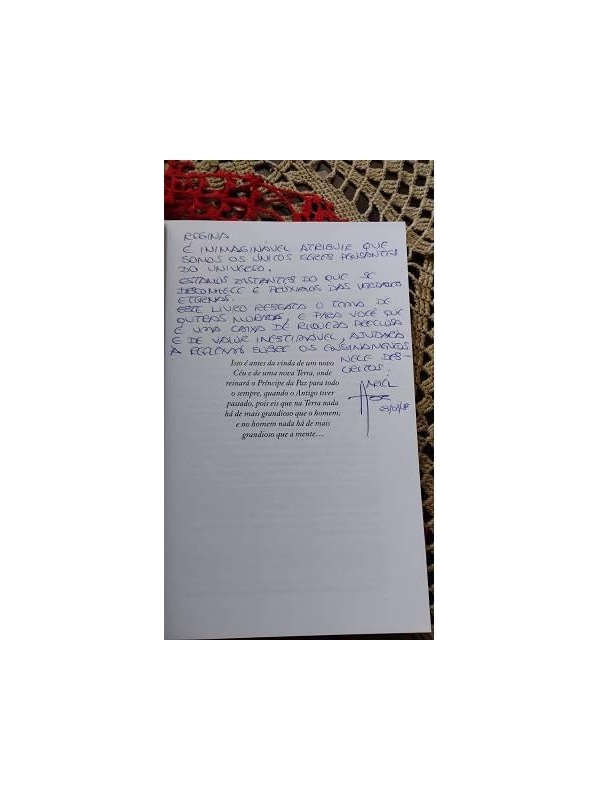 REGINA
É INIMAGINÁVEL ATRIBUIR QUE
SOMOS OS ÚNICOS SERES PENSANTES
DO UNIVERSO.
ESTAMOS DISTANTES DO QUE SE
DESCONHECE E DAS VERDADES
ETERNAS.
ESTE LIVRO RESGATA O TEMA DE
OUTRAS MORADAS, E PARA VOCÊ QUE
É UMA CAIXA DE RIQUEZA PRECIOSA
E DE VALOR INESTIMÁVEL, AJUDARÁ
A REFLEXÃO SOBRE OS ENSINAMENTOS
NELE DES-
CRITOS.
Isso é antes da vinda de um novo
Céu e de uma nova Terra, onde
reinará o Príncipe da Paz para todo
o sempre, quando o Antigo tiver
passado, pois eis que na Terra nada
há de mais grandioso que o homem;
e no homem nada há de mais
grandioso que a mente…